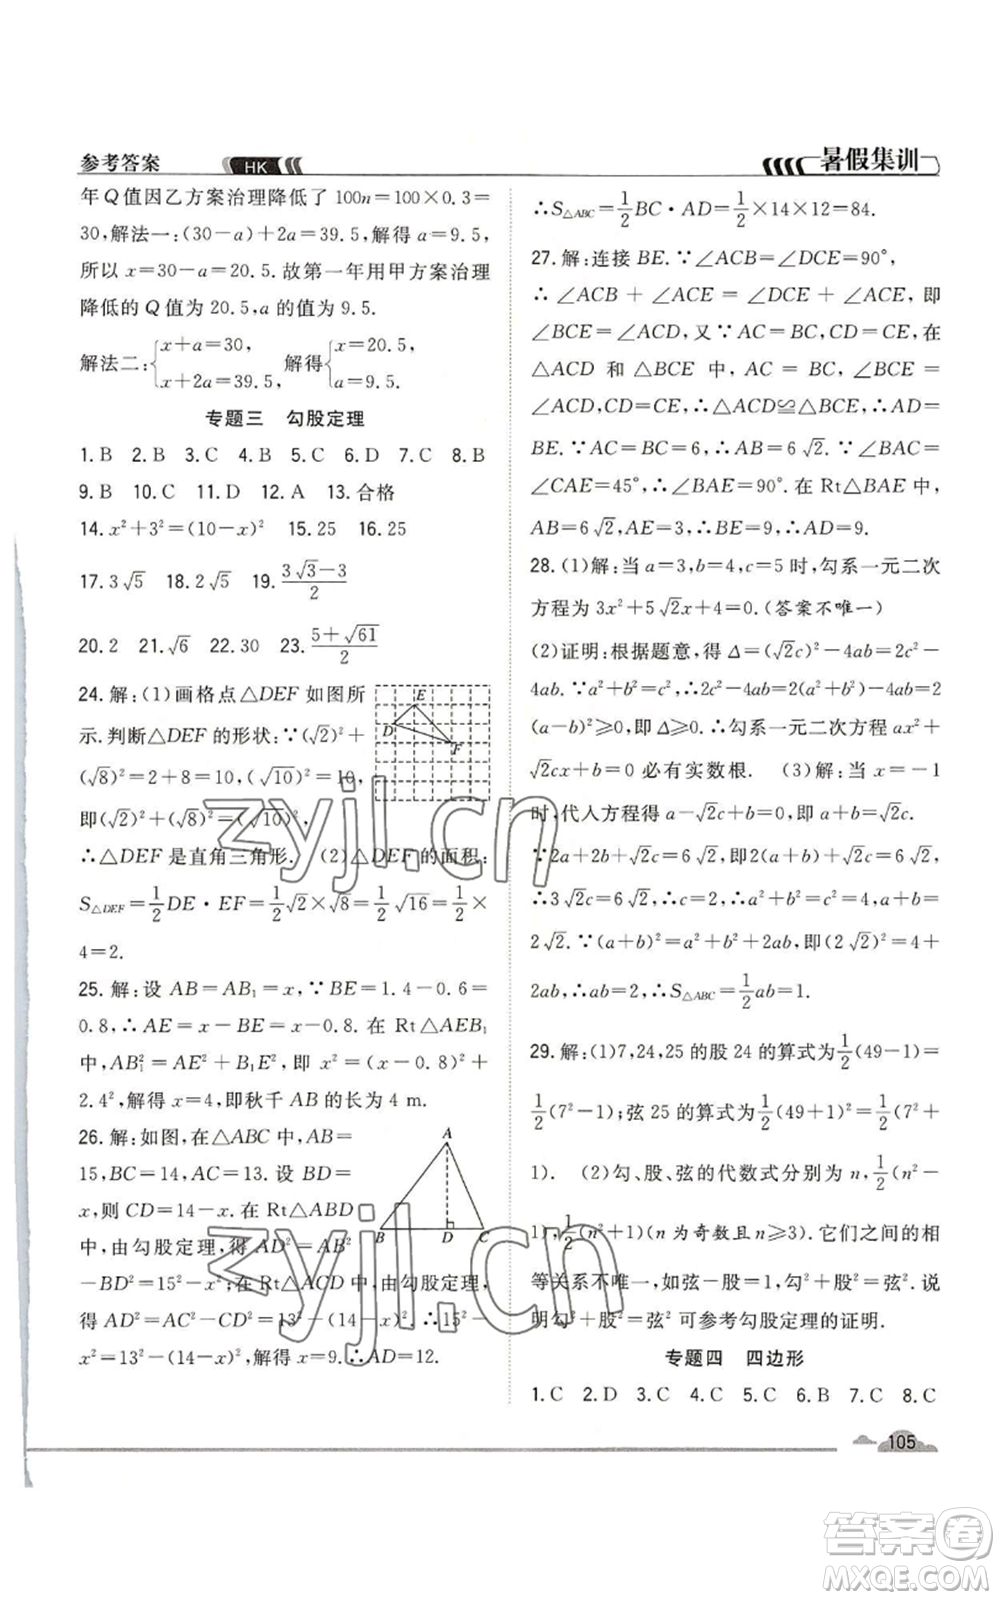 参考答案 HK 暑假集训
年 Q 值因乙方案治理降低了 100n=100×0.3=
30,解法一:(30-a)+2a=39.5,解得 a=9.5,
所以 x=30-a=20.5.故第一年用甲方案治理
降低的 Q 值为 20.5,a 的值为 9.5.
解法二:{x+a=30, x+2a=39.5, 解得{x=20.5, a=9.5.
专题三 勾股定理
1.B 2.B 3.C 4.B 5.C 6.D 7.C 8.B
9.B 10.C 11.D 12.A 13.合格
14.x²+3²=(10-x)² 15.25 16.25
17.3√5 18.2√5 19.(3√3-3)/2
20.2 21.√6 22.30 23.(5+√61)/2
24.解:(1)画格点△DEF 如图所
示.判断△DEF 的形状:∵(√2)²+
(√8)²=2+8=10,(√10)²=10,
即(√2)²+(√8)²=(√10)²,
∴△DEF 是直角三角形. (2)△DEF 的面积:
S△DEF=1/2 DE·EF=1/2 √2×√8=1/2 √16=1/2×
4=2.
E
D
F
25.解:设 AB=AB₁=x,∵BE=1.4-0.6=
0.8,∴AE=x-BE=x-0.8.在 Rt△AEB₁
中,AB₁²=AE²+B₁E²,即 x²=(x-0.8)²+
2.4²,解得 x=4,即秋千 AB 的长为 4 m.
26.解:如图,在△ABC 中,AB=
15,BC=14,AC=13.设 BD=
x,则 CD=14-x.在 Rt△ABD
中,由勾股定理,得 AD²=AB²
-BD²=15²-x²;在 Rt△ACD 中,由勾股定理,
得 AD²=AC²-CD²=13²-(14-x)².∴15²-
x²=13²-(14-x)²,解得 x=9.∴AD=12.
A
B D C
∴S△ABC=1/2 BC·AD=1/2×14×12=84.
27.解:连接 BE.∵∠ACB=∠DCE=90°,
∴∠ACB+∠ACE=∠DCE+∠ACE,即
∠BCE=∠ACD,又∵AC=BC,CD=CE,在
△ACD 和△BCE 中,AC=BC,∠ACD=
∠BCE,CD=CE,∴△ACD≌△BCE,∴AD=
BE.∵AC=BC=6,∴AB=6√2.∵∠BAC=
∠CAE=45°,∴∠BAE=90°.在 Rt△BAE 中,
AB=6√2,AE=3,∴BE=9,∴AD=9.
28.(1)解:当 a=3,b=4,c=5 时,勾系一元二次
方程为 3x²+5√2x+4=0.(答案不唯一)
(2)证明:根据题意,得 Δ=(√2c)²-4ab=2c²-
4ab.∵a²+b²=c²,∴2c²-4ab=2(a²+b²)-4ab=2
(a-b)²≥0,即 Δ≥0.∴勾系一元二次方程 ax²+
√2cx+b=0 必有实数根. (3)解:当 x=-1
时,代入方程得 a-√2c+b=0,即 a+b=√2c.
∵2a+2b+√2c=6√2,即2(a+b)+√2c=6√2,
∴3√2c=6√2,∴c=2,∴a²+b²=c²=4,a+b=
2√2.∵(a+b)²=a²+b²+2ab,即(2√2)²=4+
2ab,∴ab=2,∴S△ABC=1/2 ab=1.
29.解:(1)7,24,25 的股 24 的算式为1/2(49-1)=
1/2(7²-1);弦 25 的算式为1/2(49+1)=1/2(7²+
1). (2)勾、股、弦的代数式分别为 n,1/2(n²-
1),1/2(n²+1)(n 为奇数且 n≥3).它们之间的相
等关系不唯一,如弦-股=1,勾²+股²=弦².说
明勾²+股²=弦² 可参考勾股定理的证明.
专题四 四边形
1.C 2.D 3.C 4.C 5.C 6.B 7.C 8.C
105
zyjl.cn
zyjl.cn
答案卷
MXQE.COM